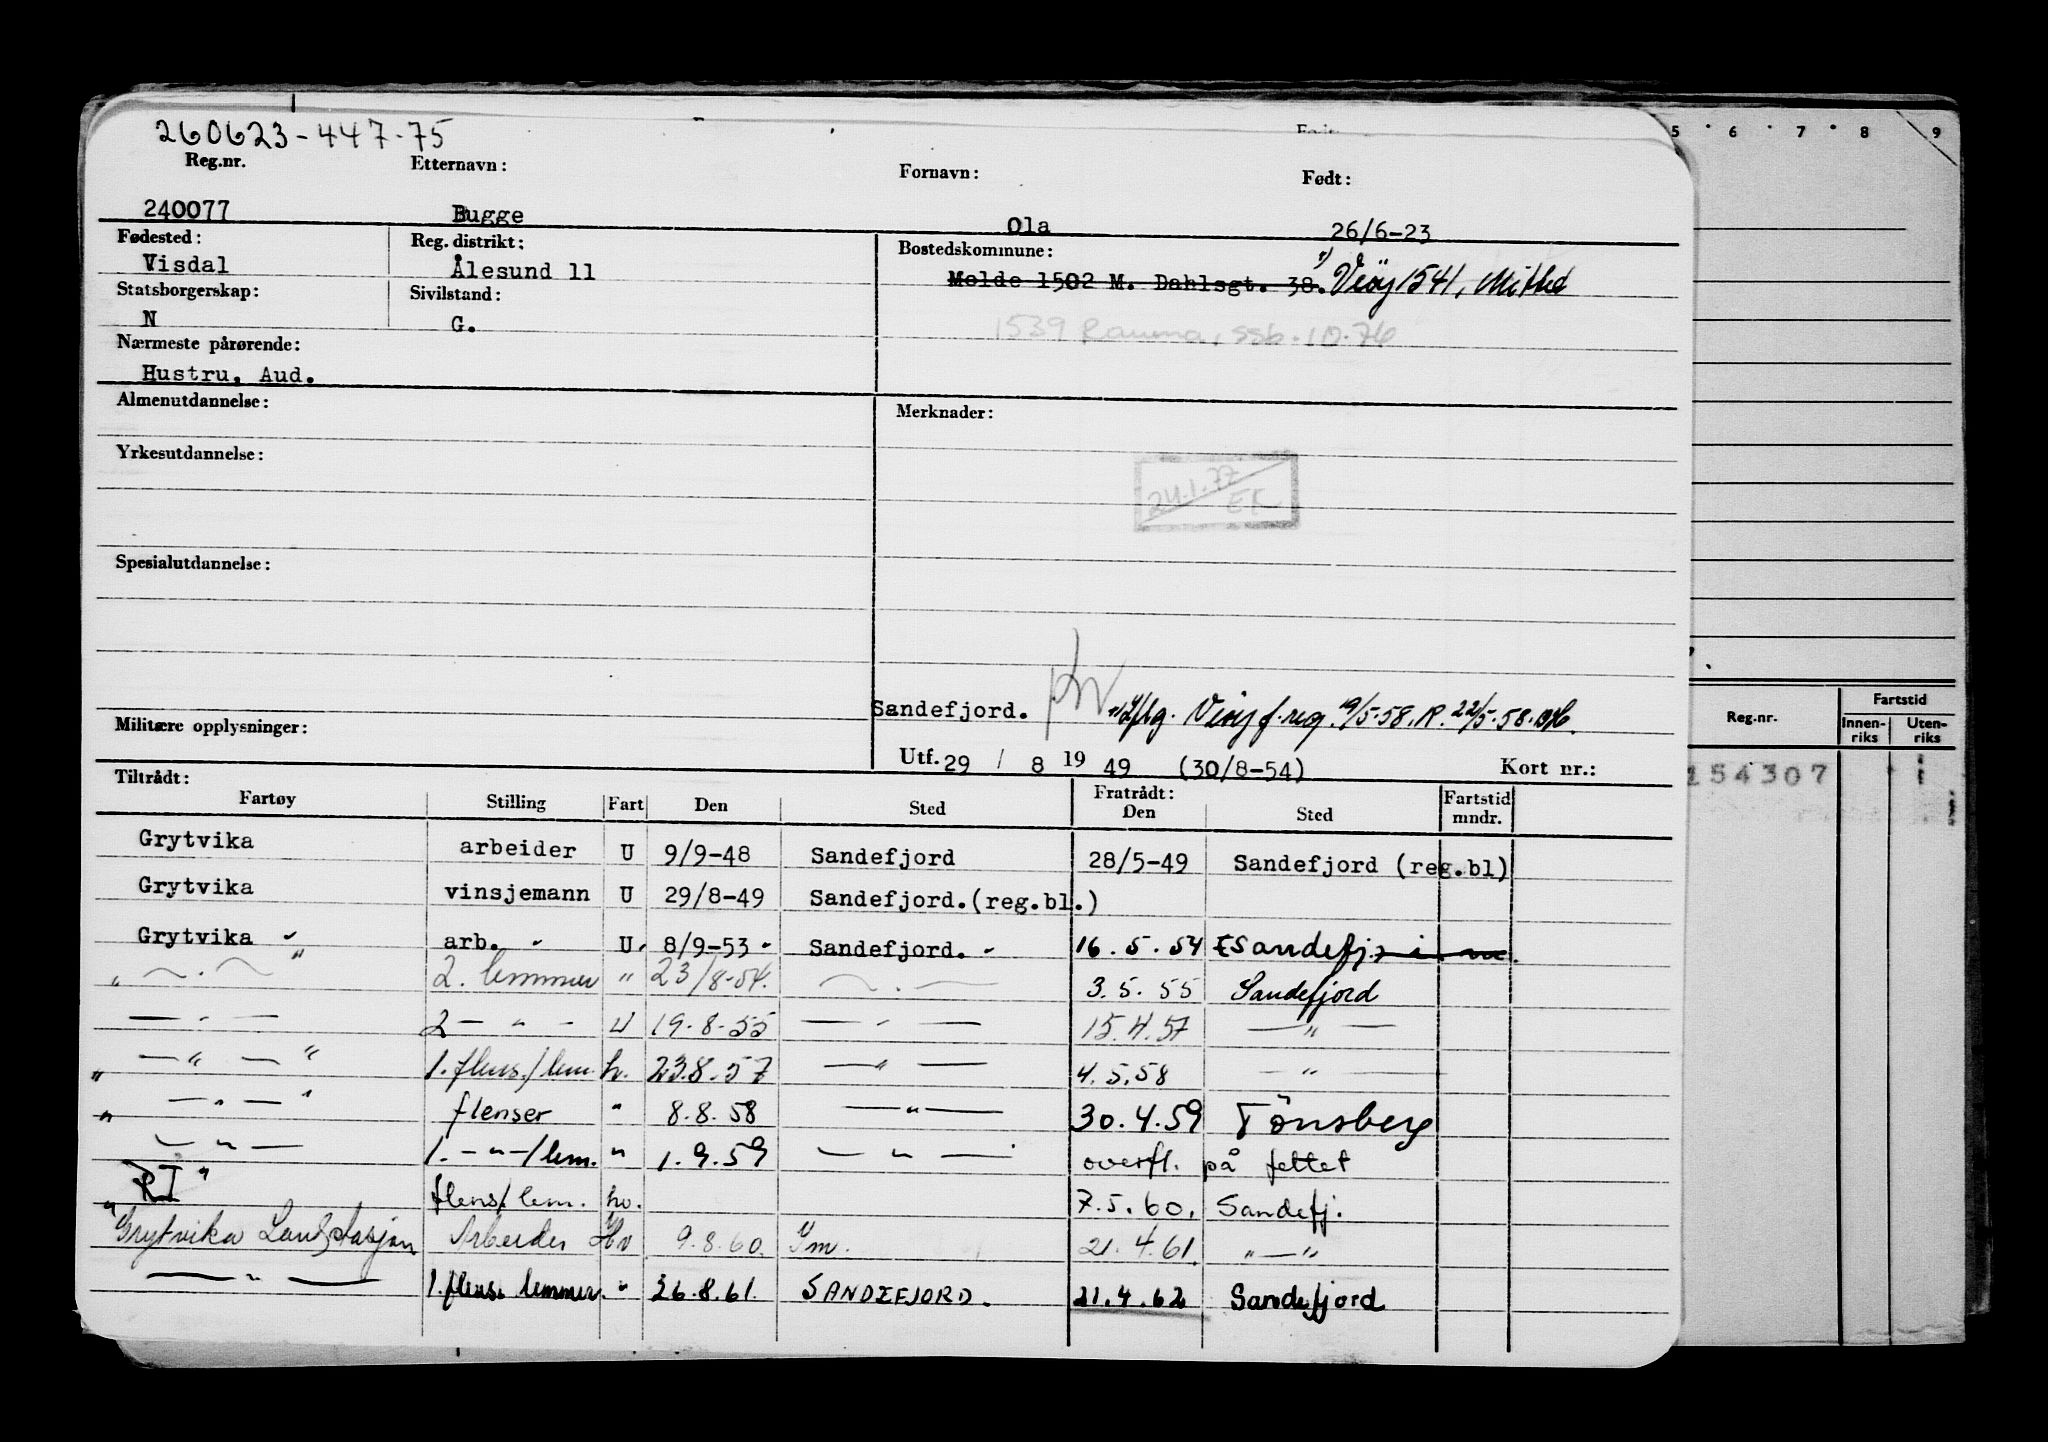 260623-447-75
Reg.nr. Etternavn: Fornavn: Født:
240077 Bugge Ola 26/6-23
Fødested: Reg. distrikt: Bostedskommune:
Visdal Ålesund 11 Molde 1502 M. Dahlsgt. 38. 1) Veøy 1541, Mittet
Statsborgerskap: Sivilstand:
N G. 1539 Rauma, ssb. 10.76
Nærmeste pårørende:
Hustru, Aud.
Almenutdannelse: Merknader:
Yrkesutdannelse:
24.1.77
EK
Spesialutdannelse:
Sandefjord. Veøy f.reg. 19/5-58. R. 22/5-58.
Militære opplysninger:
Utf. 29 / 8 19 49 (30/8-54) Kort nr.:
Tiltrådt: Fratrådt: Fartstid
Fartøy Stilling Fart Den Sted Den Sted mndr.
Grytvika arbeider U 9/9-48 Sandefjord 28/5-49 Sandefjord (reg.bl)
Grytvika vinsjemann U 29/8-49 Sandefjord.(reg.bl.)
Grytvika " arb. U. 8/9-53 Sandefjord. 16.5.54 Sandefj.
" — . — 2. lemmer " 23/8-54. — . — 3.5.55 Sandefjord
— " — 2 — " — U 19.8.55 — " — 15.4.57 — " —
" — " — " 1. flens./lem. h. 23.8.57 — " — 4.5.58 — " —
" — " — " flenser " 8.8.58 — " — 30.4.59 Tönsberg
— " — 1. — " —/lem. " 1.9.59 — " — overfl. på feltet
RI " flens/lem. hv. 7.5.60. Sandefj.
"Grytvika Landstasjon Arbeider Hv 9.8.60. 21.4.61. " — "
— " — 1. flens. lemmer. " 26.8.61. SANDEFJORD. 21.4.62 Sandefjord
5 6 7 8 9
Reg.nr. Fartstid
Innen-riks Uten-riks
154307